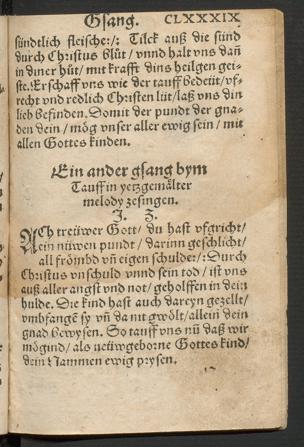 Gsang. CLXXXIX
sündtlich fleische:/: Tilck auß die sünd
durch Christus blůt / vnnd halt vns dañ
in diner hůt / mit krafft dins heilgen gei-
ste. Erschaff vns wie der tauff bedeüt / vf-
recht vnd redlich Christen lüt / laß vns din
lieb befinden. Domit der pundt der gna-
den dein / mög vnser aller ewig sein / mit
allen Gottes kinden.
Ein ander gsang bym
Tauff in yetzgemälter
melody zesingen.
J. Z.
ACh treüwer Gott / du hast vfgricht /
ein nüwen pundt / darinn geschlicht /
all frömbd vñ eigen schulde:/: Durch
Christus vnschuld vnnd sein tod / ist vns
auß aller angst vnd not / geholffen in dein
hulde. Die kind hast auch dareyn gezellt /
vmbfangẽ sy vñ damit gwölt / allein dein
gnad bewysen. So tauff vns nũ daß wir
mögind / als neüwgeborne Gottes kind /
dein Nammen ewig prysen.